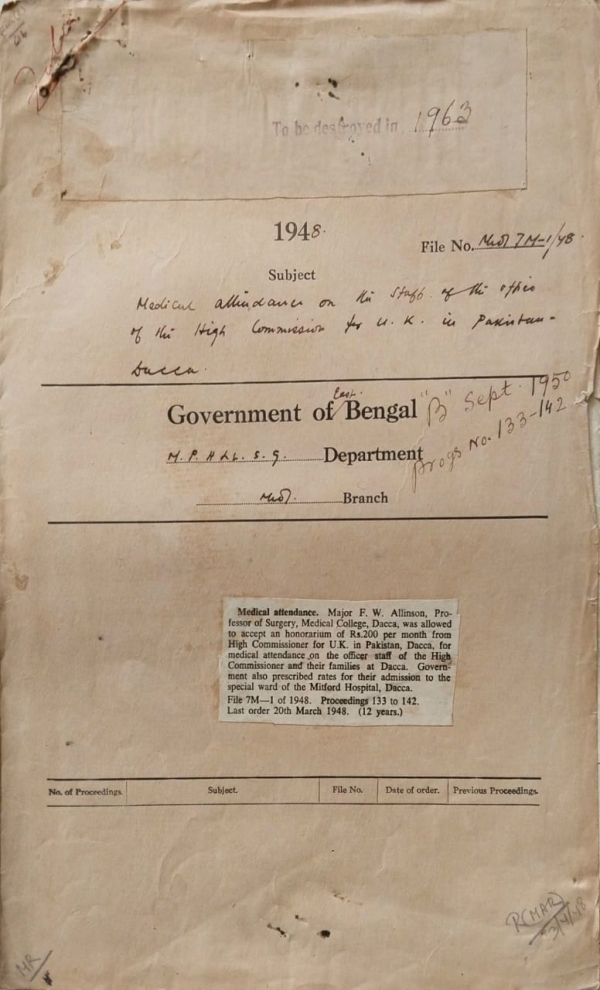 To be destroyed in 1963
1948.
File No. Med 7M-1/48.
Subject
Medical attendance on the Staff of the office
of the High Commission for U.K. in Pakistan-
Dacca.
East
Government of Bengal "B" Sept. 1950
Progs No. 133-142
M. P. H & L. S. G. Department
Med. Branch
Medical attendance. Major F. W. Allinson, Pro-
fessor of Surgery, Medical College, Dacca, was allowed
to accept an honorarium of Rs.200 per month from
High Commissioner for U.K. in Pakistan, Dacca, for
medical attendance on the officer staff of the High
Commissioner and their families at Dacca. Govern-
ment also prescribed rates for their admission to the
special ward of the Mitford Hospital, Dacca.
File 7M—1 of 1948. Proceedings 133 to 142.
Last order 20th March 1948. (12 years.)
No. of Proceedings. Subject. File No. Date of order. Previous Proceedings.
R(MAR)
MR